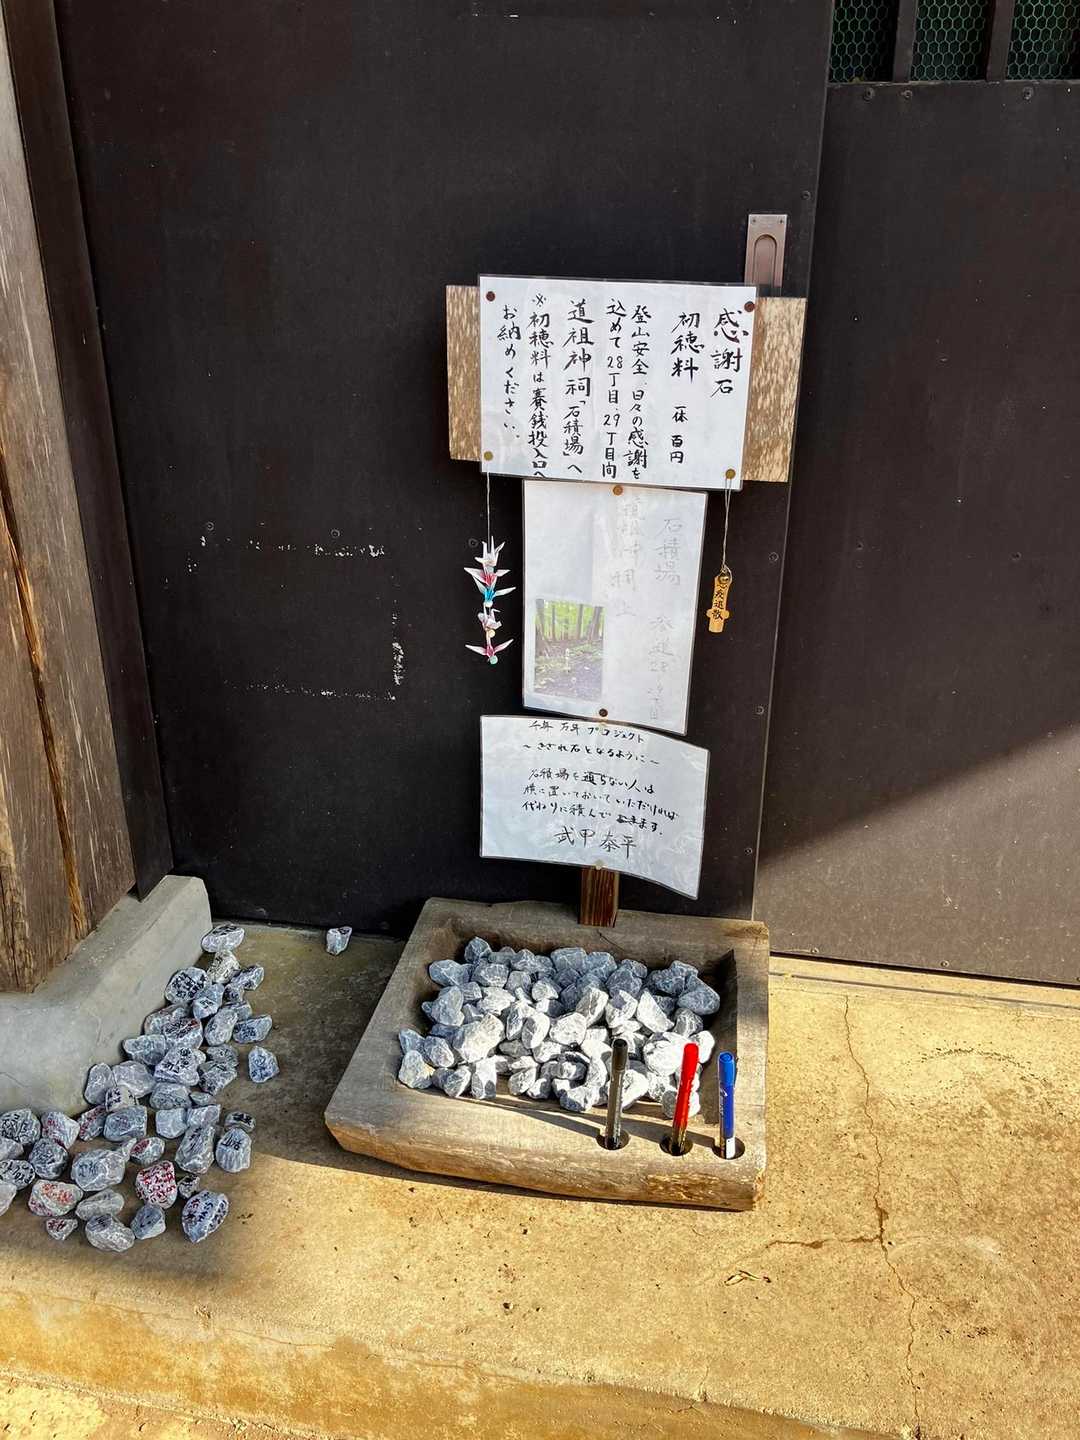 感謝石
初穂料 一体 百円
登山安全、日々の感謝を
込めて28丁目、29丁目間
道祖神祠「石積場」へ
お納めください。
※初穂料は賽銭投入口へ
石積場 参道28
道祖神祠
疫退散
千年万年プロジェクト
～さざれ石となるように～
石積場を通らない人は
横に置いておいていただければ
代わりに積んで
武甲泰平